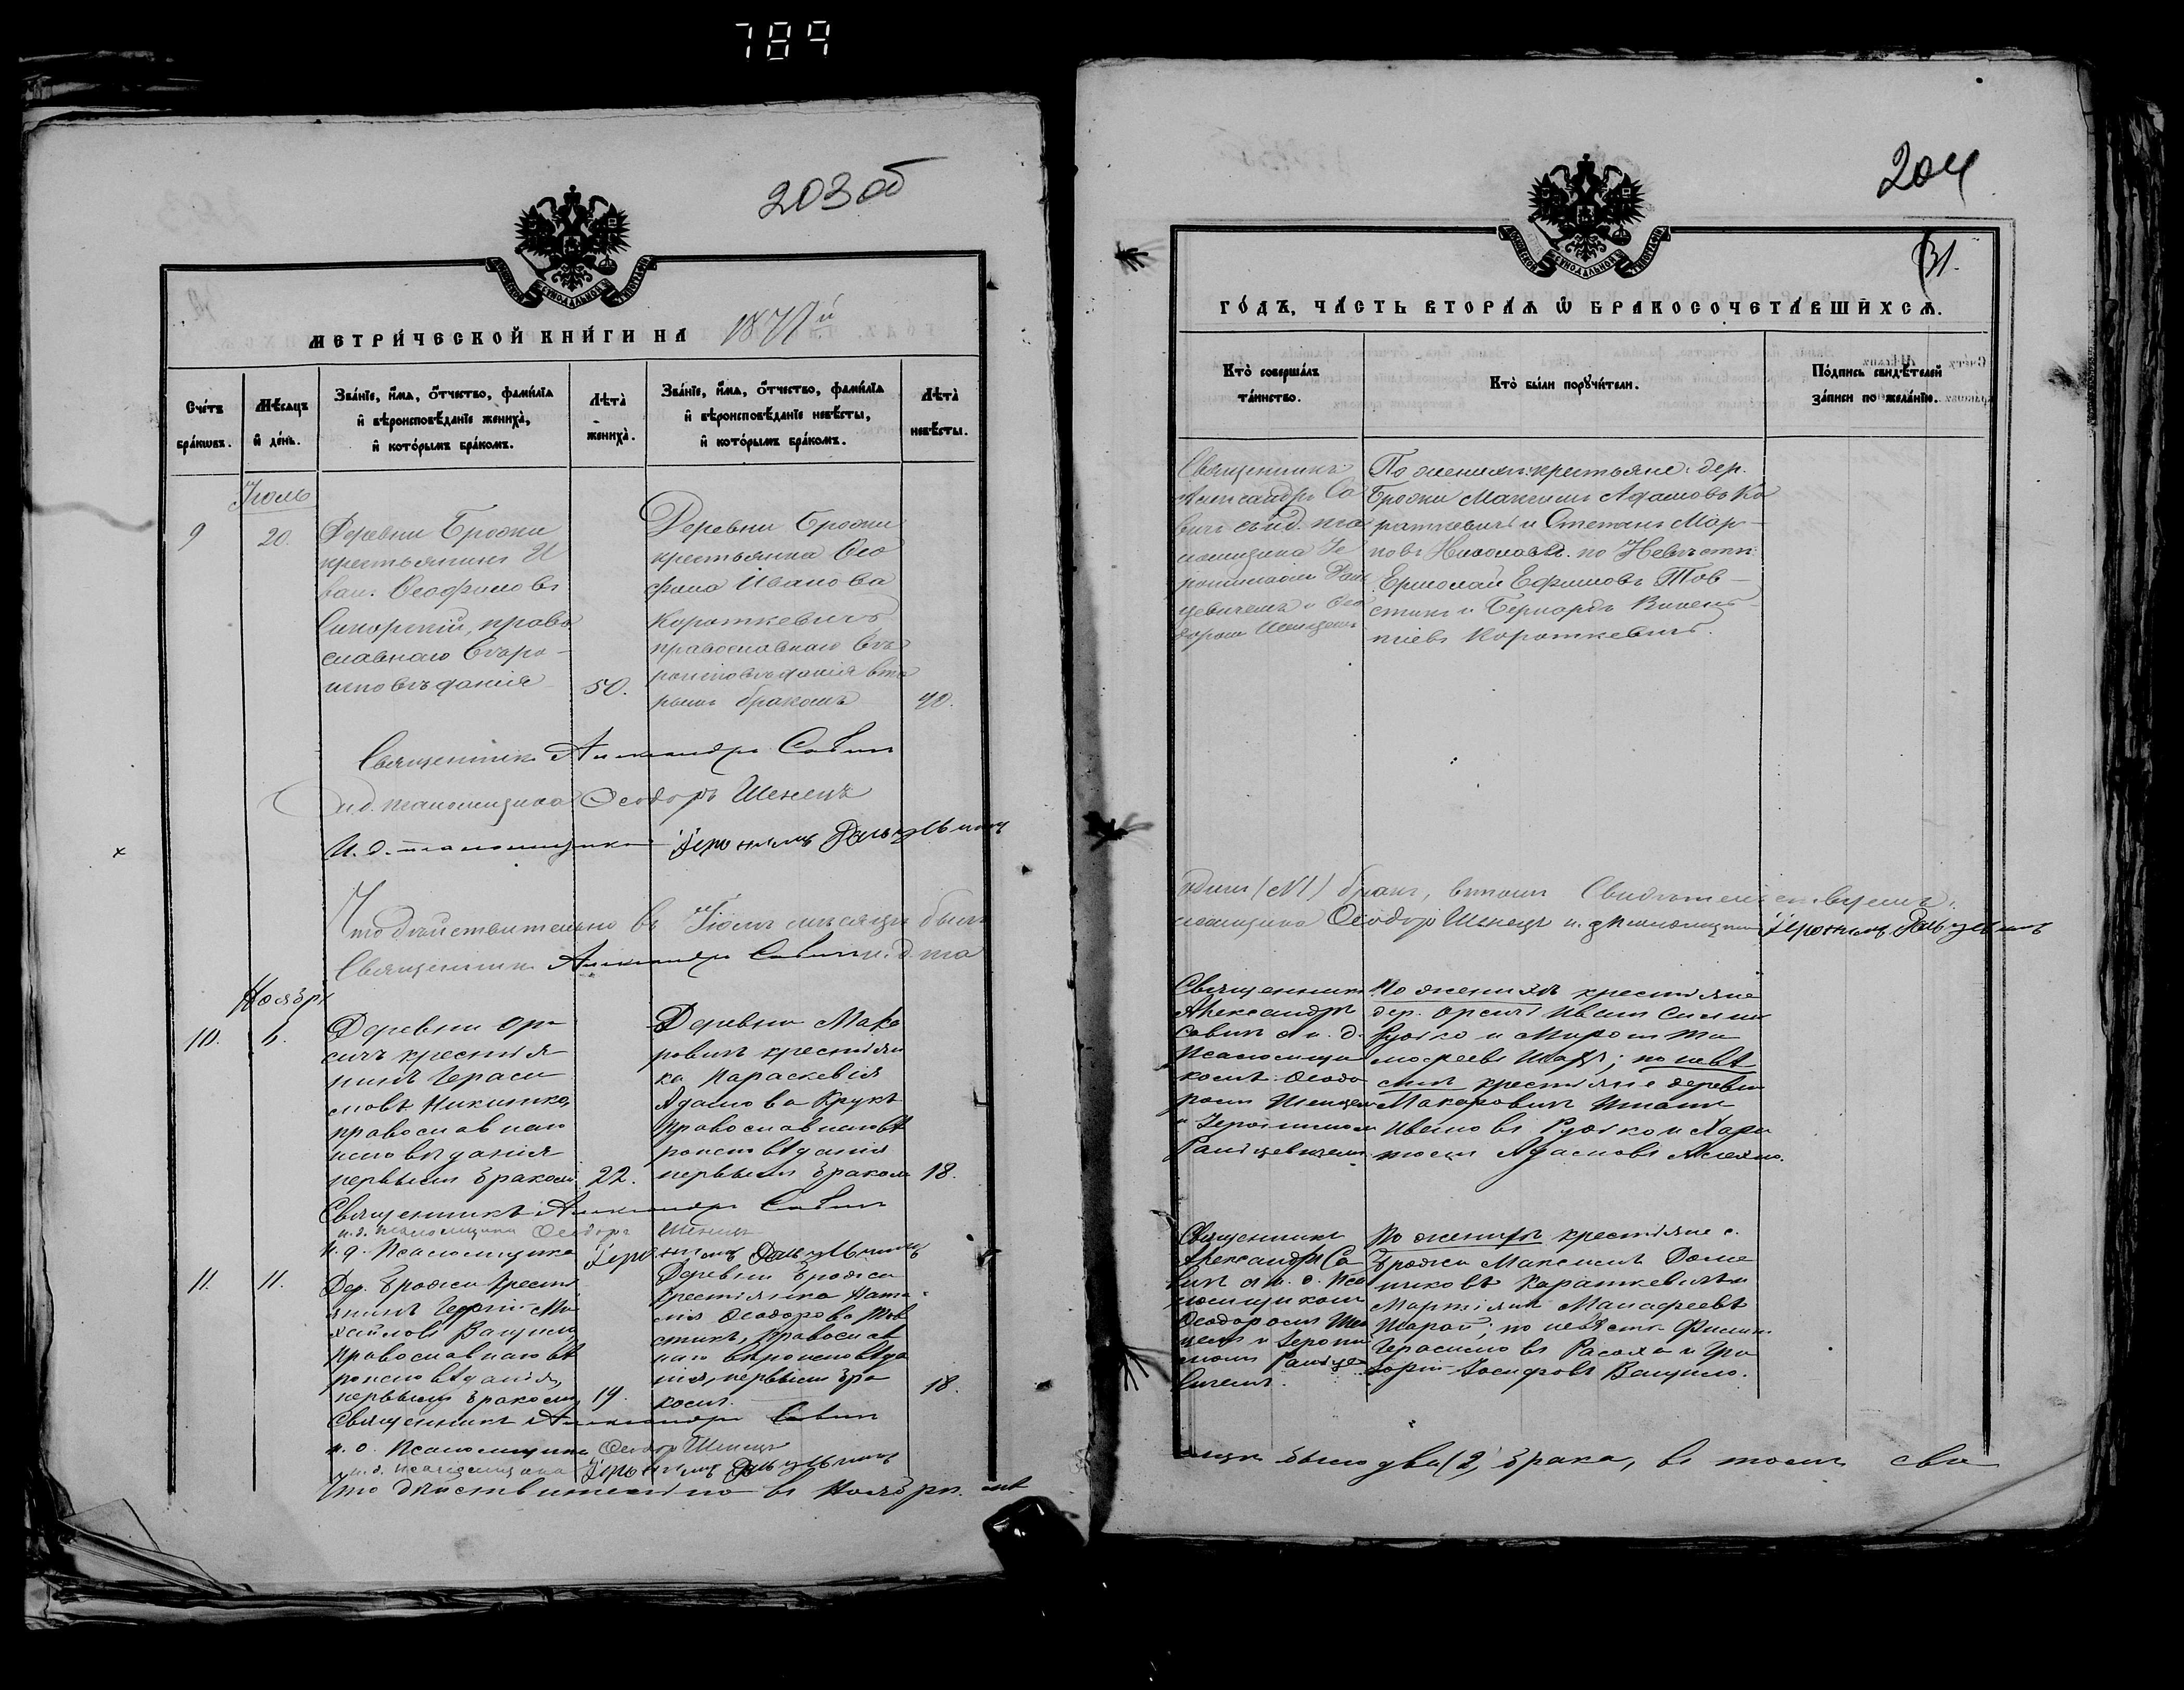 789
203 об
МЕТРИЧЕСКОЙ КНИГИ НА 1871й
Счетъ браковъ.
Мѣсяцъ и день.
Званіе, имя, отчество, фамилія и вѣроисповѣданіе жениха, и которымъ бракомъ.
Лѣта жениха.
Званіе, имя, отчество, фамилія и вѣроисповѣданіе невѣсты, и которымъ бракомъ.
Лѣта невѣсты.
Іюль
9
20.
Деревни Брожи
крестьянинъ И
ванъ Ѳеофиловъ
Сикорскій, право
славнаго вѣро-
исповѣданія
50.
Деревни Брожи
крестьянка Ѳео
фила Иванова
Короткевичъ
православнаго вѣ
роисповѣданія вто
рымъ бракомъ
40.
Священникъ Александръ Савичъ
и.д. псаломщика Ѳеодоръ Шенецъ
И. д. псаломщика Іеронимъ
Что дѣйствительно въ Іюлѣ мѣсяцѣ былъ
Священникъ Александръ Савичъ и. д. пса
Ноября
10.
6.
Деревни Ор
сичъ крестья
нинъ Гераси
мовъ Никитко,
православнаго
исповѣданія
первымъ бракомъ
22.
Деревни Мака
ровичъ крестьян
ка Параскевія
Адамова Крукъ
православнаго вѣ
роисповѣданія
первымъ бракомъ
18.
Священникъ Александръ Савичъ
и.д. псаломщика Ѳеодоръ Шенецъ
И. д. Псаломщика Іеронимъ
11.
11.
Дер. Брожи крестья
янинъ Георгій Ми
хайловъ Ващило,
православнаго вѣ
роисповѣданія,
первымъ бракомъ
19.
Деревни Брожи
крестьянка Ната
лія Ѳеодорова Тов
стикъ, православ
наго вѣроисповѣда
нія, первымъ бра
комъ.
18.
Священникъ Александръ Савичъ
и. д. Псаломщика Ѳеодоръ Шенецъ
и. д. псаломщика Іеронимъ
Что дѣйствительно въ Ноябрѣ мѣ
204
31.
ГОДЪ, ЧАСТЬ ВТОРАЯ Ѡ БРАКОСОЧЕТАВШИХСЯ.
Кто совершалъ таинство.
Кто были поручители.
Подпись свидѣтелей записи по желанію.
Священникъ
Александръ Са
вичъ съ и.д. пса
ломщика Іе
ронимомъ
цевичемъ и Ѳео
доромъ Шенцемъ
По женихѣ: крестьяне дер.
Брожи Максимъ Адамовъ Ко
раткевичъ и Степанъ Мар-
ковъ. по Невѣстѣ:
Ермолай Ефимовъ Тов-
стикъ и Бернардъ Викен-
тіевъ Короткевичъ.
одинъ (№1) бракъ, въ томъ Свидѣтельствуемъ:
ломщика Ѳеодоръ Шенецъ и. д. псаломщика Іеронимъ
Священникъ
Александръ
Савичъ съ и. д.
Псаломщи
комъ Ѳеодо
ромъ Шенцемъ
и Іеронимомъ
По женихѣ крестьяне
дер. Орсичъ Иванъ
Рудько и Миронъ Ти
моѳеевъ; по невѣ
стѣ крестьяне деревни
Макаровичъ Игнатъ
Ивановъ Рудько и Хари
тонъ Адамовъ
Священникъ
Александръ Са
вичъ съ и. д. Пса
ломщикомъ
Ѳеодоромъ Шен
цемъ и Іерони
момъ
вичемъ.
По женихѣ крестьяне с.
Брожи Максимъ Доме
никовъ Караткевичъ и
Мартіянъ
по невѣстѣ Филипъ
Герасимовъ Расоха и Гри
горій Іосифовъ Ващило.
сяцѣ было два (2) брака, въ томъ сви